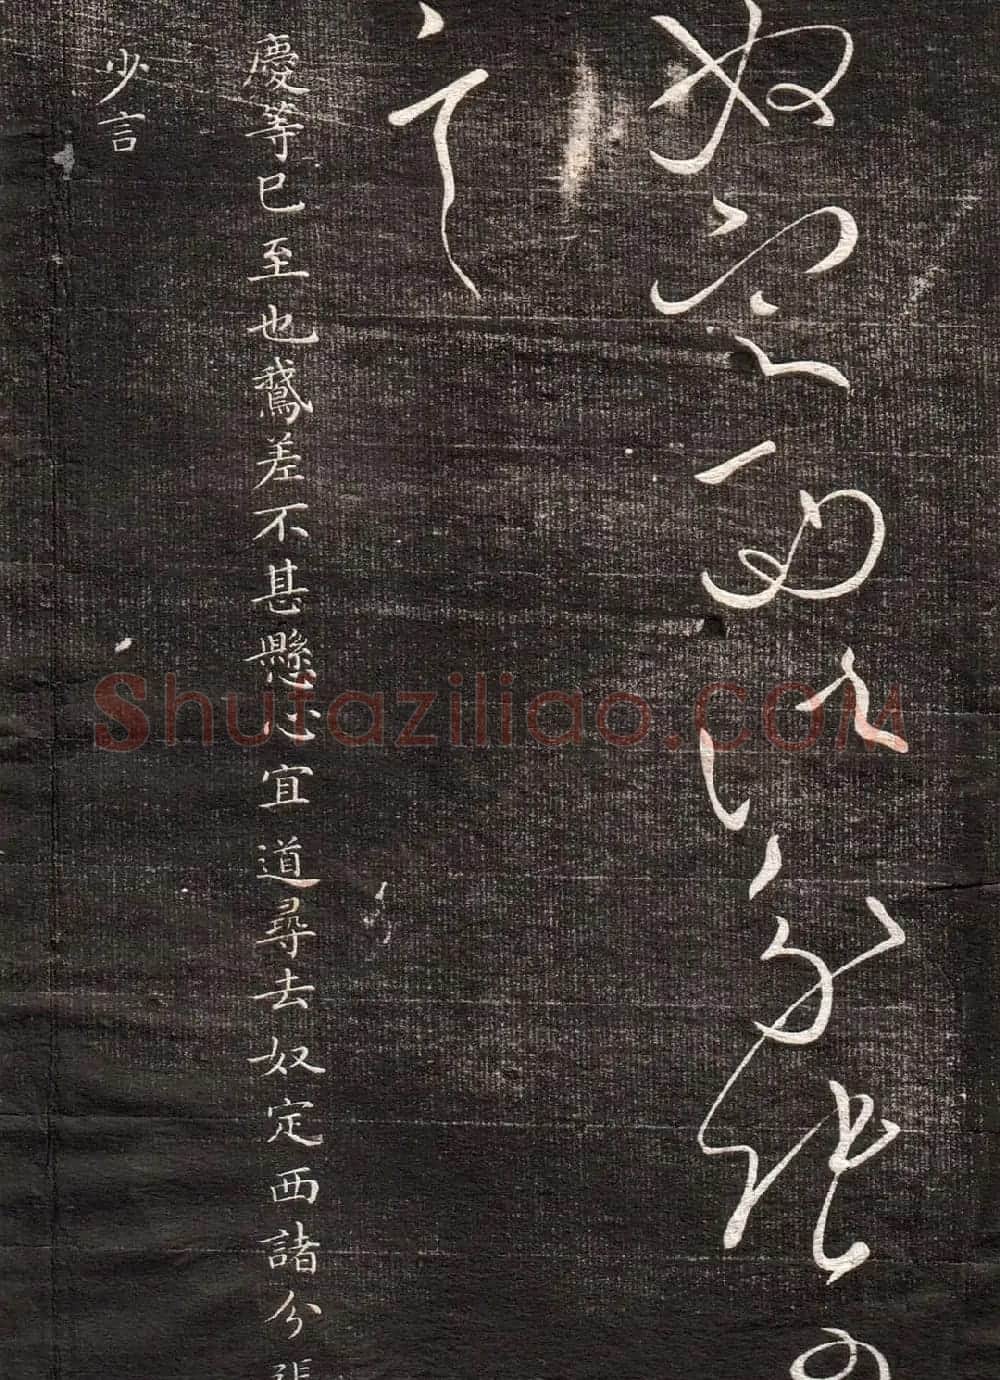 奴定西諸分張
言
慶等已至也鵞差不甚懸心宜道尋去奴定西諸分張
少言
Shufaziliao.COM